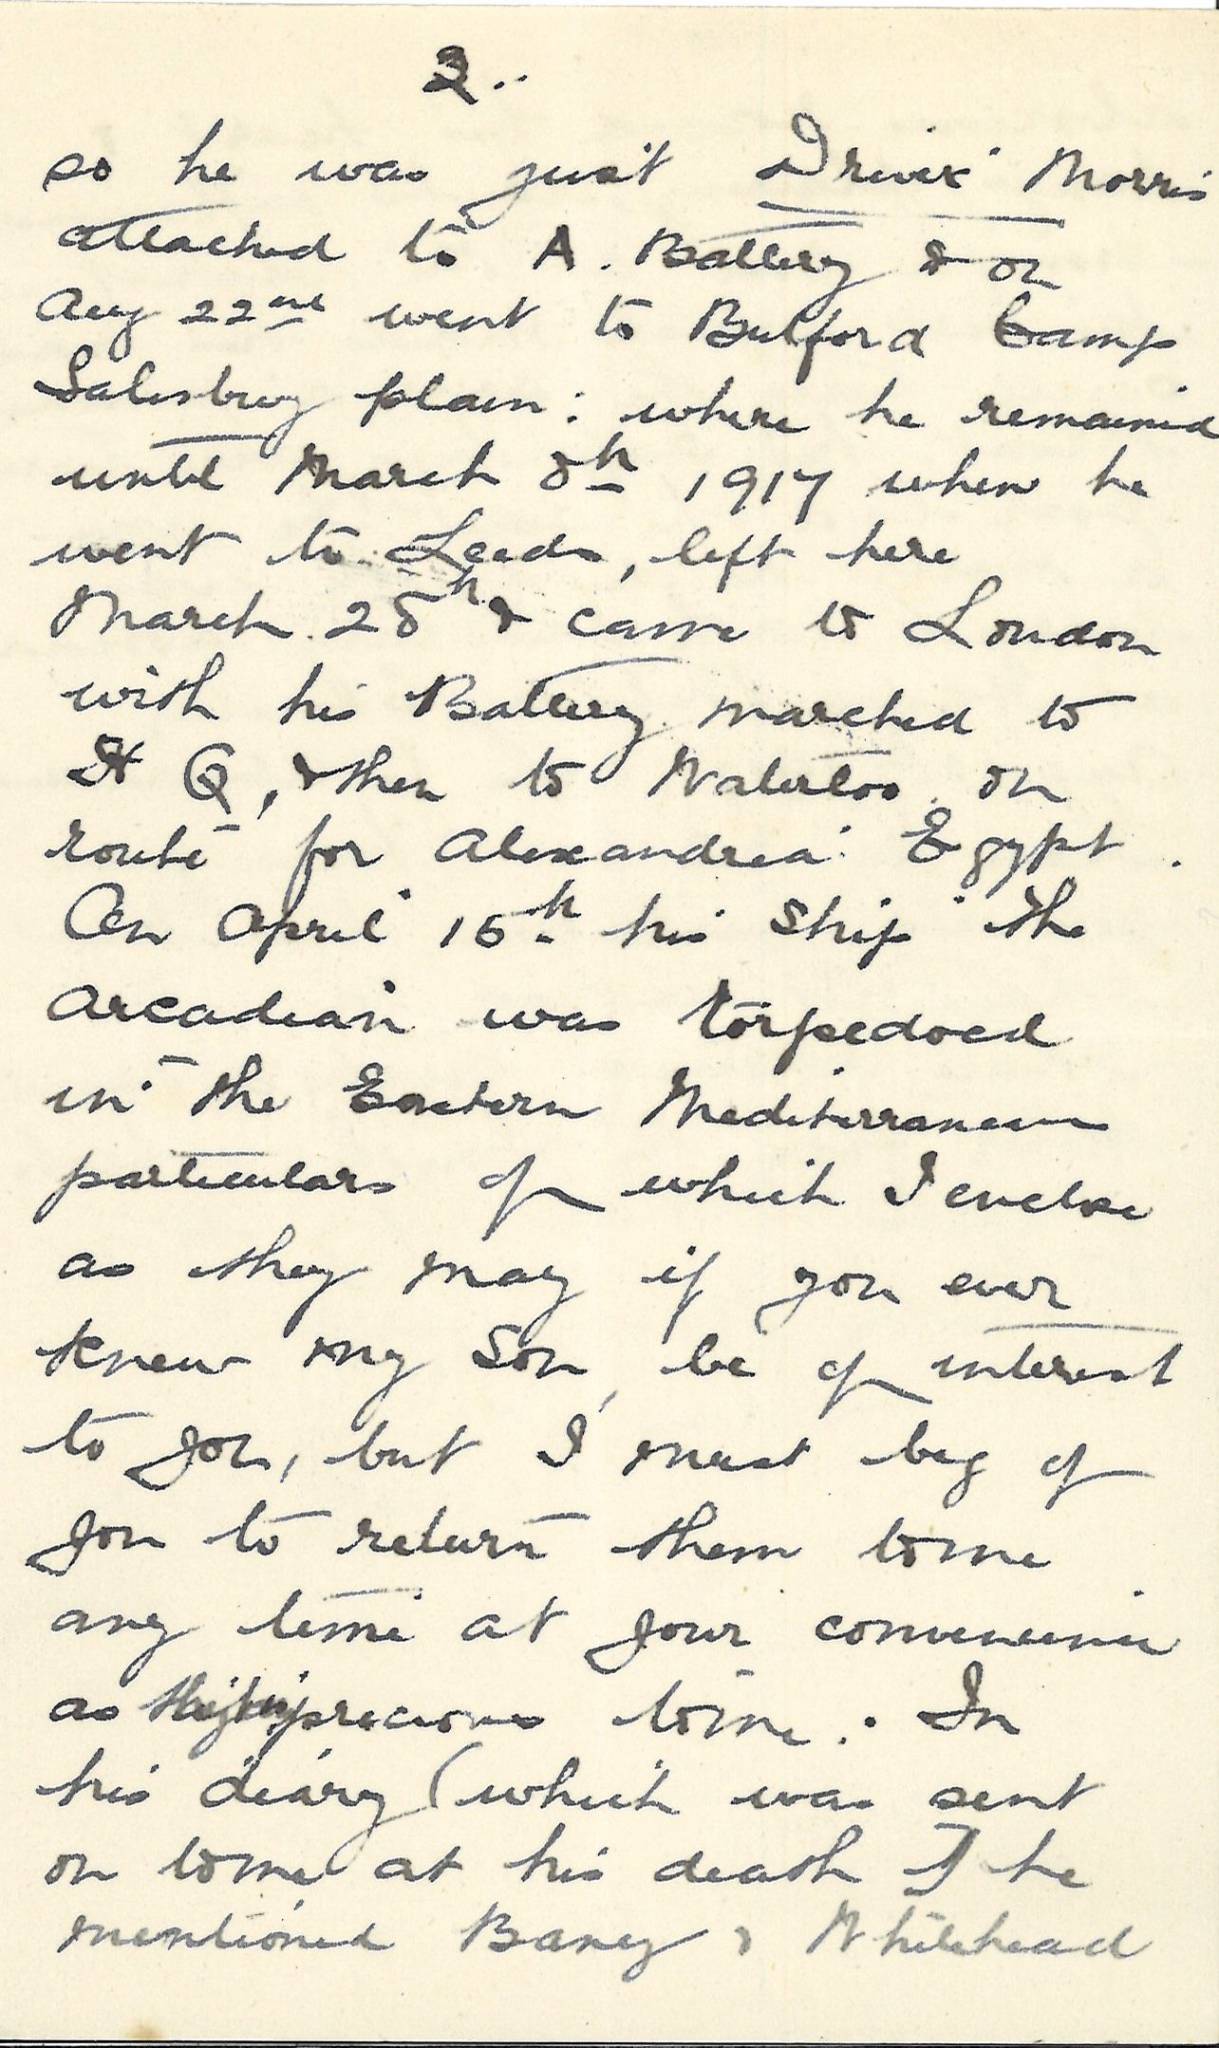 2..
so he was just Driver Morris
attached to A. Battery & on
Aug 22nd went to Bulford Camp
Salisbury plain: where he remained
until March 8th 1917 when he
went to Leeds, left here
March 28th & came to London
with his Battery marched to
H Q, & then to Waterloo on
route for Alexandria Egypt.
On April 15th his Ship "the
Arcadian" was torpedoed
in the Eastern Mediterranean
particulars of which I enclose
as they may if you ever
knew my Son, be of interest
to you, but I must beg of
you to return them to me
any time at your convenience
as precious to me. In
his diary (which was sent
on to me at his death) he
mentioned & Whitehead